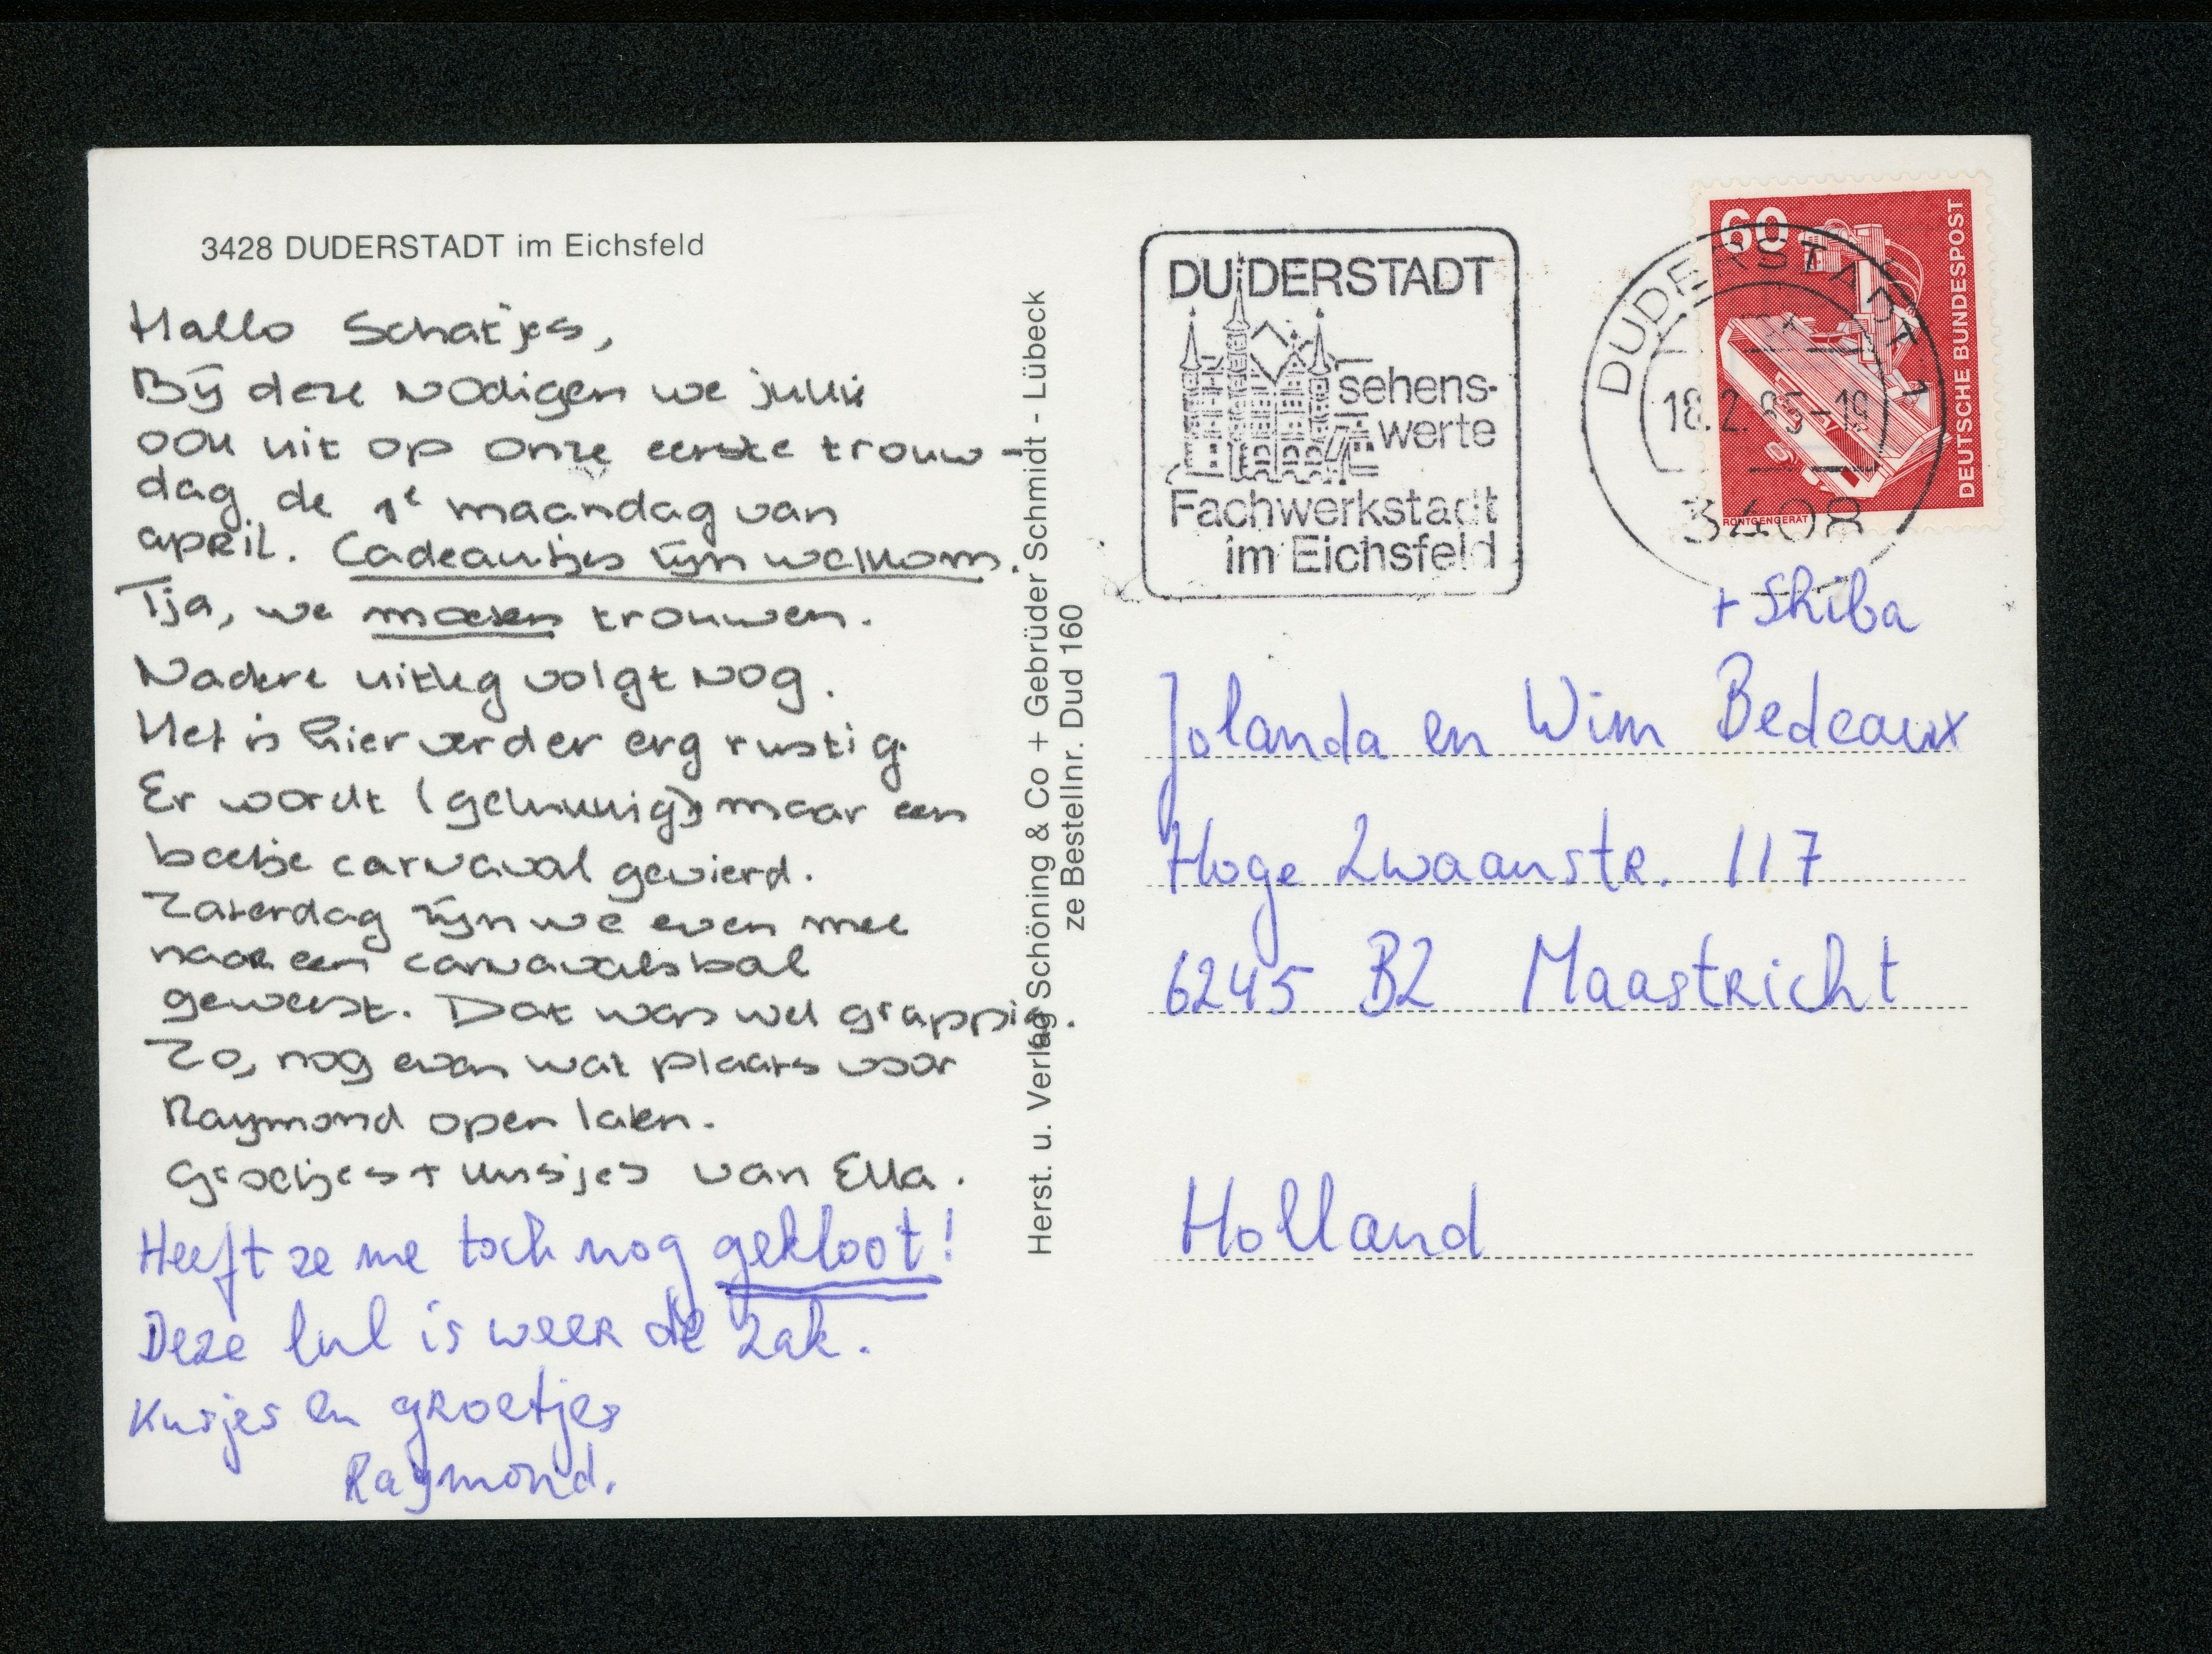 3428 DUDERSTADT im Eichsfeld
Hallo Schatjes,
Bij deze nodigen we jullie
ook uit op onze eerste trouw-
dag de 1e maandag van
april. Cadeautjes zijn welkom.
Tja, we moesten trouwen.
Nadere uitleg volgt nog.
Het is hier verder erg rustig.
Er wordt (gelukkig) maar een
beetje carnaval gevierd.
Zaterdag zijn we even mee
naar een carnavalsbal
geweest. Dat was wel grappig.
Zo, nog even wat plaats voor
Raymond open laten.
Groetjes + kusjes van Ella.
Heeft ze me toch nog gekloot!
Deze lul is weer de zak.
Kusjes en groetjes
Raymond.
Herst. u. Verlag Schöning & Co + Gebrüder Schmidt - Lübeck
ze Bestellnr. Dud 160
DUDERSTADT
sehens-
werte
Fachwerkstadt
im Eichsfeld
60
DEUTSCHE BUNDESPOST
RÖNTGENGERÄT
DUDERSTADT 1
18.2.85-19
3408
+ Shiba
Jolanda en Wim Bedeaux
Hoge Zwaanstr. 117
6245 BZ Maastricht
Holland